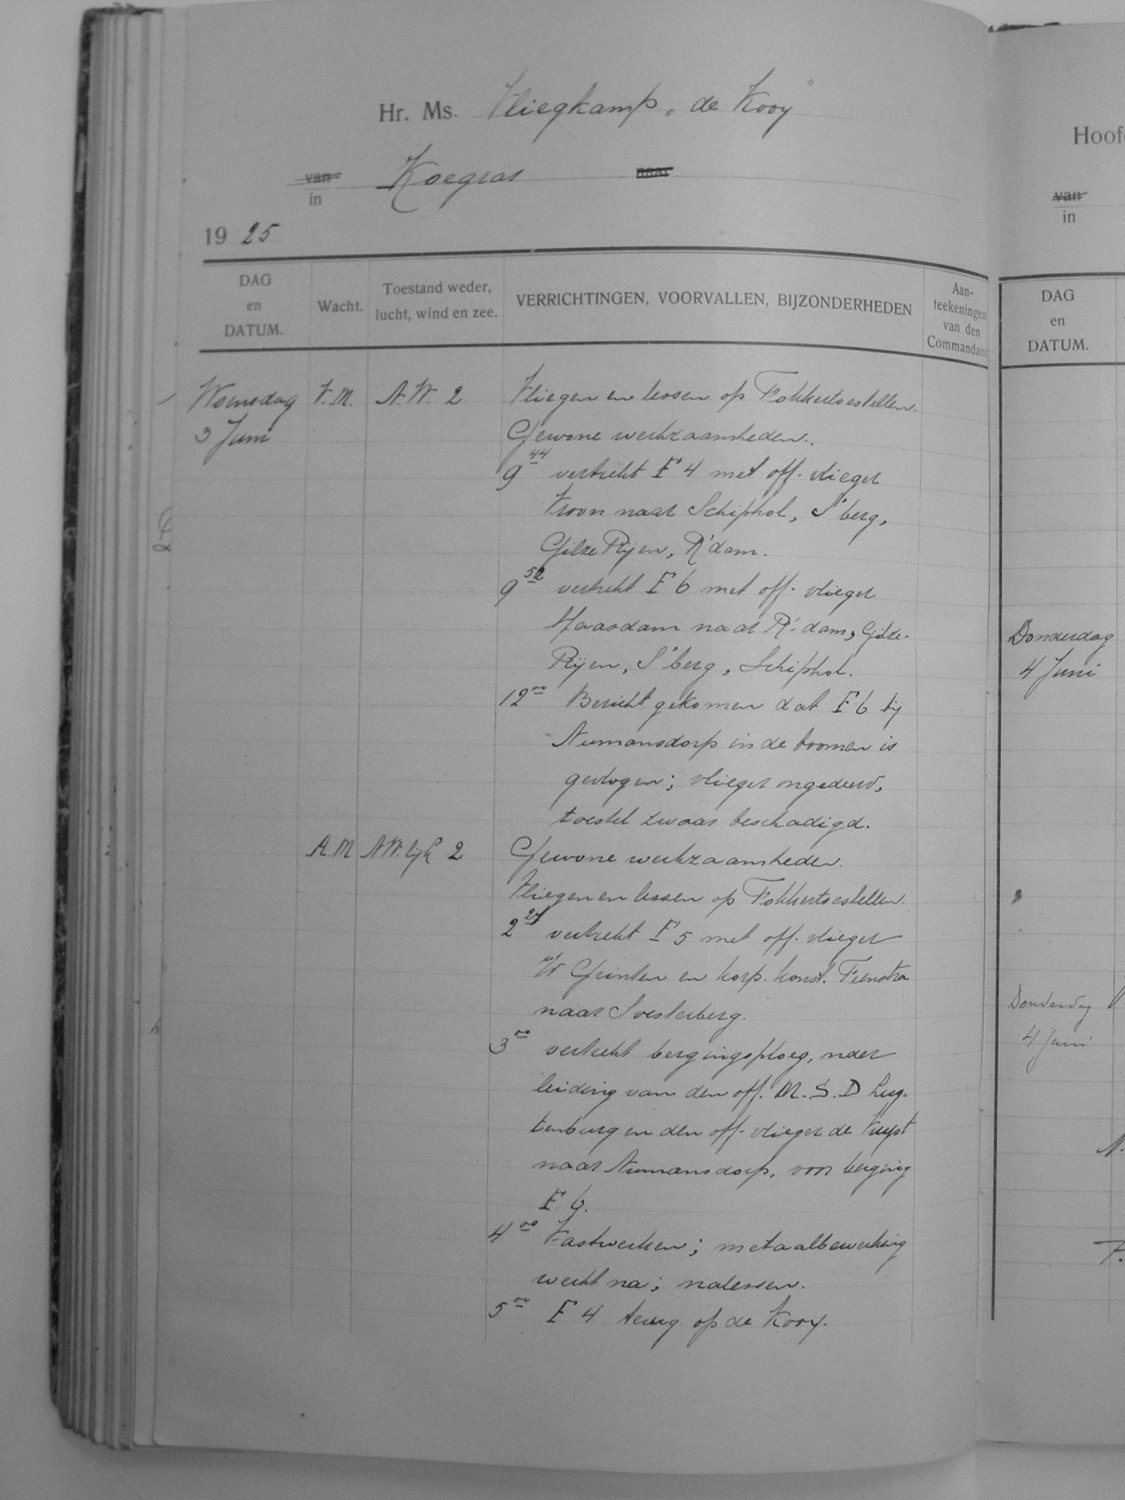 Hr. Ms. Vliegkamp „de Kooy"
van Koegras naar
in
1925
DAG en DATUM.
Wacht.
Toestand weder, lucht, wind en zee.
VERRICHTINGEN, VOORVALLEN, BIJZONDERHEDEN
Aan-teekeningen van den Commandant
Woensdag V.M. N.W. 2 Vliegen en lessen op Fokkertoestellen.
3 Juni Gewone werkzaamheden.
9 44 vertrekt F 4 met off. vlieger
Kroon naar Schiphol, S'berg,
Gilze Rijen, R'dam.
9 52 vertrekt F 6 met off. vlieger
Maasdam naar R'dam, Gilze-
Rijen, S'berg, Schiphol.
12 00 Bericht gekomen dat F 6 bij
Numansdorp in de boomen is
gevlogen; vlieger ongedeerd,
toestel zwaar beschadigd.
A.M N.W. 2 Gewone werkzaamheden.
Vliegen en lessen op Fokkertoestellen.
2 27 vertrekt F 5 met off. vlieger
Grinten en korp. konst. Feenstra
naar Soesterberg.
3 00 vertrekt bergingsploeg, onder
leiding van den off. M.S.D Lug-
tenburg en den off. vlieger de
naar Numansdorp, voor berging
F 6.
4 00 Vastwerken; metaalbewerking
werkt na; nalessen.
5 00 F 4 terug op de Kooy.
Hoof
van
in
DAG
en
DATUM.
Donderdag
4 Juni
Donderdag V
4 Juni